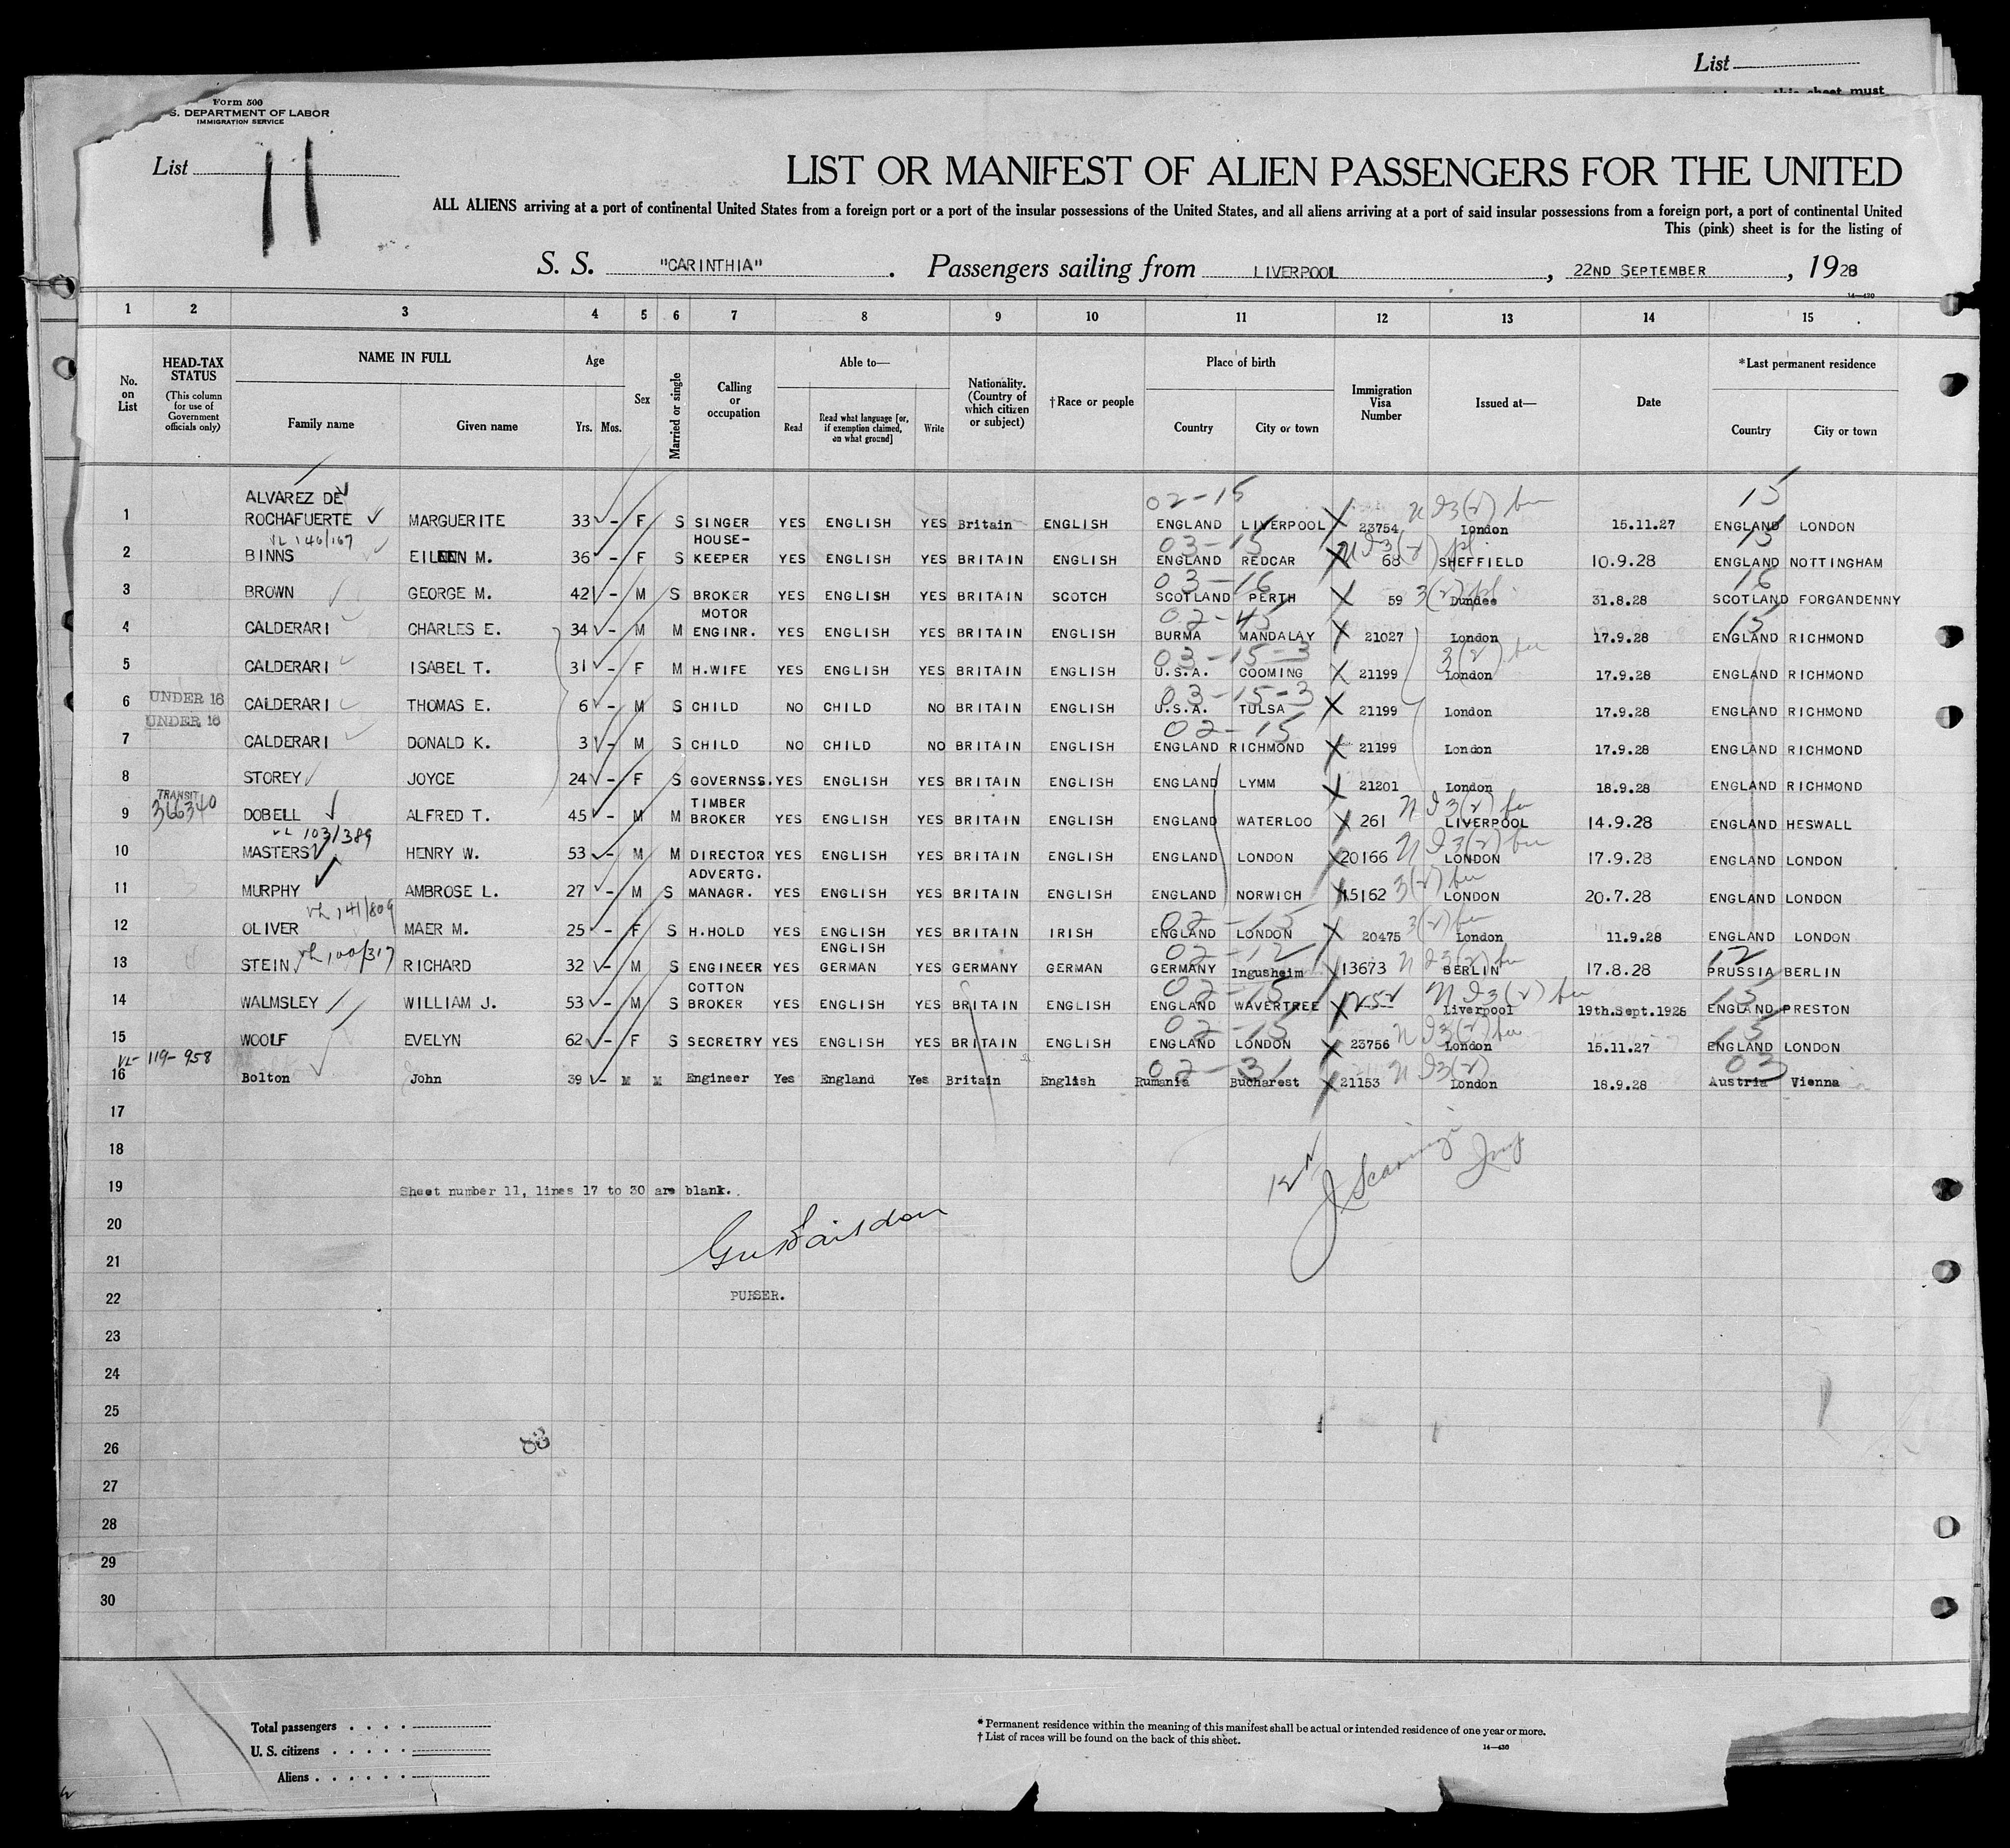 List
this sheet must
Form 500
S. DEPARTMENT OF LABOR
IMMIGRATION SERVICE
List 11
LIST OR MANIFEST OF ALIEN PASSENGERS FOR THE UNITED
ALL ALIENS arriving at a port of continental United States from a foreign port or a port of the insular possessions of the United States, and all aliens arriving at a port of said insular possessions from a foreign port, a port of continental United
This (pink) sheet is for the listing of
S. S. "CARINTHIA". Passengers sailing from LIVERPOOL, 22ND SEPTEMBER, 1928
14—430
1 2 3 4 5 6 7 8 9 10 11 12 13 14 15
No. on List
HEAD-TAX STATUS (This column for use of Government officials only)
NAME IN FULL Family name Given name
Age Yrs. Mos.
Sex
Married or single
Calling or occupation
Able to— Read Read what language [or, if exemption claimed, on what ground] Write
Nationality. (Country of which citizen or subject)
†Race or people
Place of birth Country City or town
Immigration Visa Number
Issued at—
Date
*Last permanent residence Country City or town
ALVAREZ DE 02-15 15
1 ROCHAFUERTE MARGUERITE 33 - F S SINGER YES ENGLISH YES Britain ENGLISH ENGLAND LIVERPOOL 23754 London 15.11.27 ENGLAND LONDON
VL 146/167 HOUSE- 03-15 15
2 BINNS EILEEN M. 36 - F S KEEPER YES ENGLISH YES BRITAIN ENGLISH ENGLAND REDCAR 68 SHEFFIELD 10.9.28 ENGLAND NOTTINGHAM
03-16 16
3 BROWN GEORGE M. 42 - M S BROKER YES ENGLISH YES BRITAIN SCOTCH SCOTLAND PERTH 59 3(2) Dundee 31.8.28 SCOTLAND FORGANDENNY
MOTOR 02-45 15
4 CALDERARI CHARLES E. 34 - M M ENGINR. YES ENGLISH YES BRITAIN ENGLISH BURMA MANDALAY 21027 London 17.9.28 ENGLAND RICHMOND
03-15-3 3(2)
5 CALDERARI ISABEL T. 31 - F M H.WIFE YES ENGLISH YES BRITAIN ENGLISH U.S.A. COOMING 21199 London 17.9.28 ENGLAND RICHMOND
UNDER 16 03-15-3
6 CALDERARI THOMAS E. 6 - M S CHILD NO CHILD NO BRITAIN ENGLISH U.S.A. TULSA 21199 London 17.9.28 ENGLAND RICHMOND
UNDER 16 02-15
7 CALDERARI DONALD K. 3 - M S CHILD NO CHILD NO BRITAIN ENGLISH ENGLAND RICHMOND 21199 London 17.9.28 ENGLAND RICHMOND
8 STOREY JOYCE 24 - F S GOVERNSS. YES ENGLISH YES BRITAIN ENGLISH ENGLAND LYMM 21201 London 18.9.28 ENGLAND RICHMOND
TRANSIT 366340 TIMBER
9 DOBELL ALFRED T. 45 - M M BROKER YES ENGLISH YES BRITAIN ENGLISH ENGLAND WATERLOO 261 LIVERPOOL 14.9.28 ENGLAND HESWALL
VL 103/389
10 MASTERS HENRY W. 53 - M M DIRECTOR YES ENGLISH YES BRITAIN ENGLISH ENGLAND LONDON 20166 LONDON 17.9.28 ENGLAND LONDON
ADVERTG.
11 MURPHY AMBROSE L. 27 - M S MANAGR. YES ENGLISH YES BRITAIN ENGLISH ENGLAND NORWICH 15162 3(2) LONDON 20.7.28 ENGLAND LONDON
VL 141/809 02-15
12 OLIVER MAER M. 25 - F S H.HOLD YES ENGLISH YES BRITAIN IRISH ENGLAND LONDON 20475 3(2) London 11.9.28 ENGLAND LONDON
VL 100/317 ENGLISH 02-12 12
13 STEIN RICHARD 32 - M S ENGINEER YES GERMAN YES GERMANY GERMAN GERMANY Ingusheim 13673 BERLIN 17.8.28 PRUSSIA BERLIN
COTTON 02-15 15
14 WALMSLEY WILLIAM J. 53 - M S BROKER YES ENGLISH YES BRITAIN ENGLISH ENGLAND WAVERTREE Liverpool 19th.Sept.1928 ENGLAND PRESTON
02-15 15
15 WOOLF EVELYN 62 - F S SECRETRY YES ENGLISH YES BRITAIN ENGLISH ENGLAND LONDON 23756 London 15.11.27 ENGLAND LONDON
VL-119-958 02-31 03
16 Bolton John 39 - M M Engineer Yes England Yes Britain English Rumania Bucharest 21153 London 18.9.28 Austria Vienna
17
18
19 Sheet number 11, lines 17 to 30 are blank.
20
21
22 PURSER.
23
24
25
26 83
27
28
29
30
Total passengers
U. S. citizens
Aliens
* Permanent residence within the meaning of this manifest shall be actual or intended residence of one year or more.
† List of races will be found on the back of this sheet.
14—430